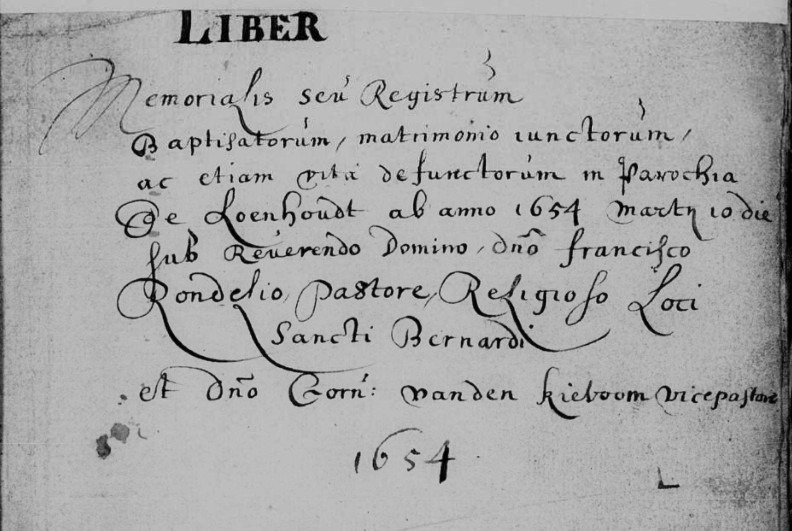 LIBER
Memorialis seu Registrum
Baptisatorum, matrimonio iunctorum,
ac etiam vita defunctorum in Parochia
De Loenhoudt ab anno 1654 Martij 10 die
sub Reverendo Domino, dño francisco
Rondelio, Pastore, Religioso Loci
Sancti Bernardi
et dño Corn: vanden kieboom vicepastore
1654